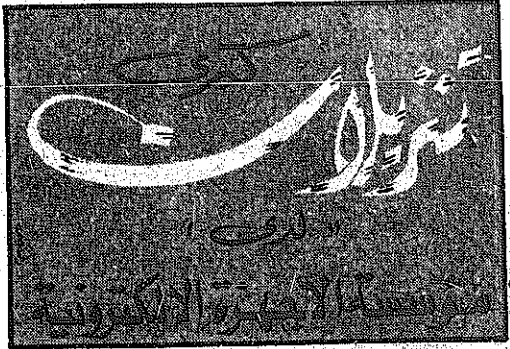 كبرى
تنزيلات
لدى
مؤسسة الأجهزة الالكترونية